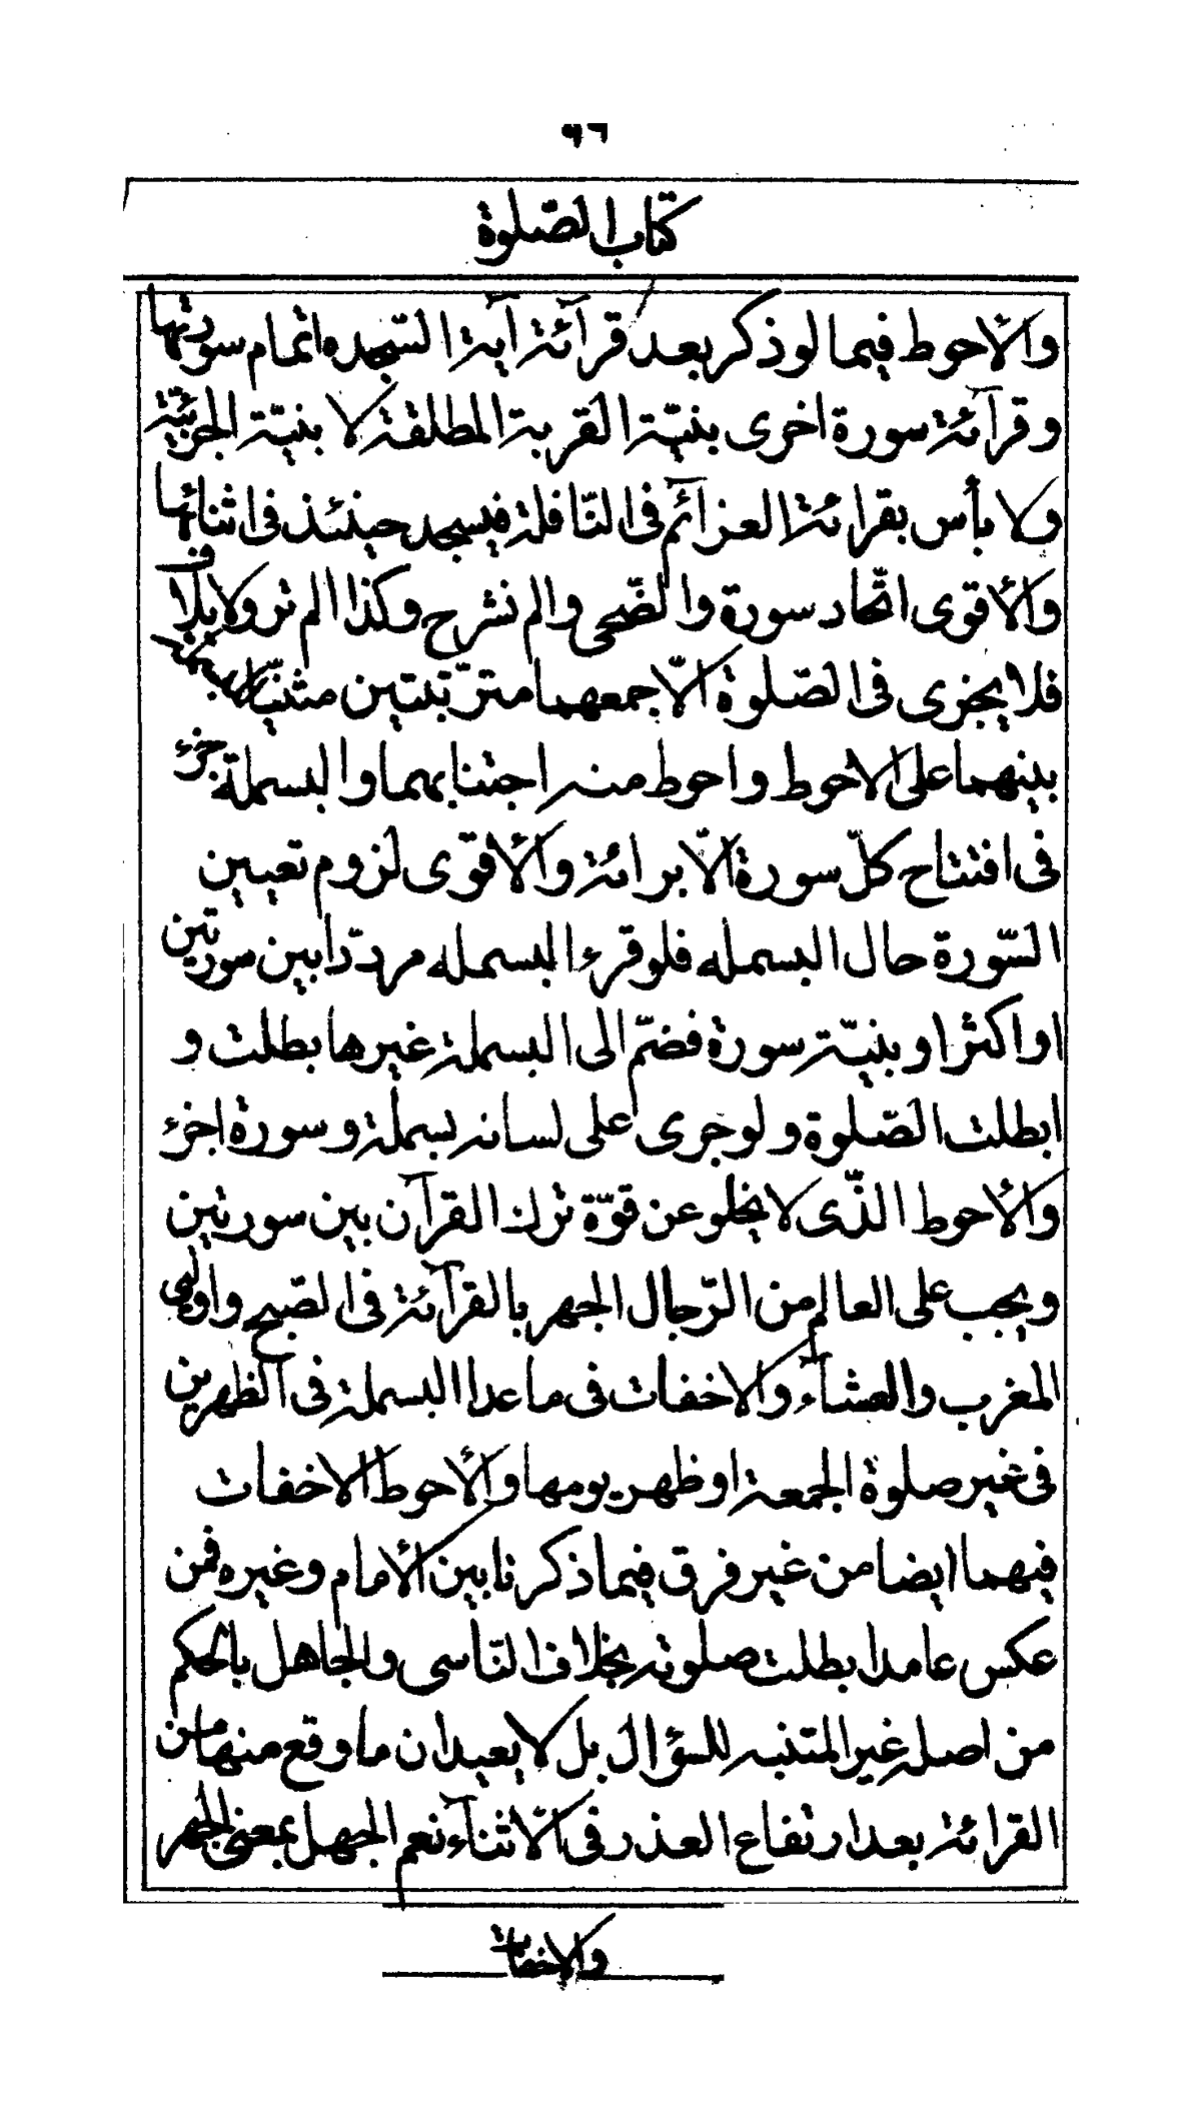 ٩٦
كتاب الصّلوة
والأحوط فيما لو ذكر بعد قرآئة آية السّجده اتمام سورتها
وقرآئة سورة اخرى بنيّة القربة المطلقة لا بنيّة الجزئيّة
ولا بأس بقرائة العزآئم فى النّافلة فيسجد حينئذ فى اثنائها
والأقوى اتّحاد سورة والضّحى والم نشرح وكذا الم تر ولايلاف
فلا يجزى فى الصّلوة الّا جمعهما مترتّبتين مثنيّا للبسملة
بينهما على الاحوط واحوط منه اجتنابهما والبسملة جزء
فى افتتاح كلّ سورة الّا برائة والأقوى لزوم تعيين
السّورة حال البسمله فلو قرء البسمله مردّدا بين سورتين
او اكثر او بنيّة سورة فضمّ الى البسملة غيرها بطلت و
ابطلت الصّلوة ولو جرى على لسانه بسملة وسورة اجزء
والأحوط الذّى لا يخلو عن قوّة ترك القرآن بين سورتين
ويجب على العالم من الرّجال الجهر بالقرآئة فى الصّبح واوليى
المغرب والعشآء والاخفات فى ما عدا البسملة فى الظهرين
فى غير صلوة الجمعة او ظهر يومها والأحوط الاخفات
فيهما ايضا من غير فرق فيما ذكرنا بين الأمام وغيره فمن
عكس عامدا بطلت صلوته بخلاف النّاسى والجاهل بالحكم
من اصله غير المتنبه للسؤال بل لا يعيدان ما وقع منهما من
القرائة بعد ارتفاع العذر فى الأثنآء نعم الجهل بمعنى الجهر
والاخفات